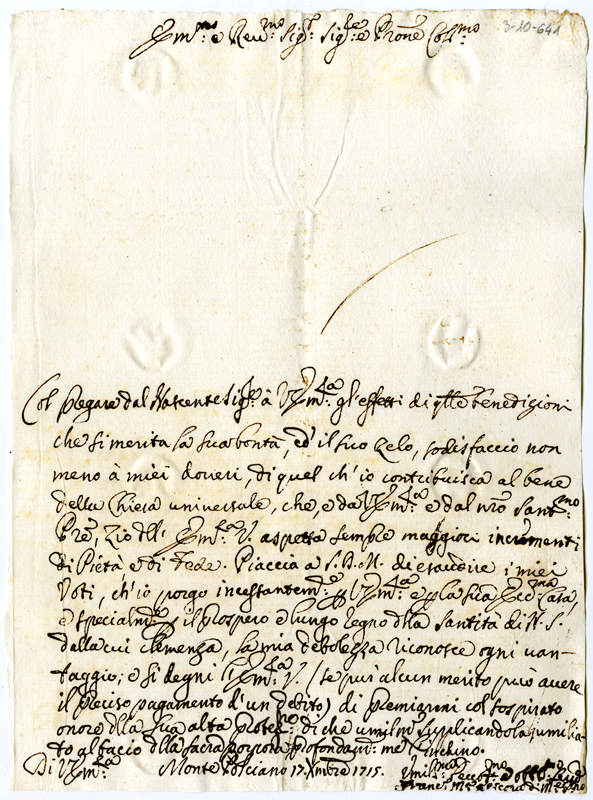 Em.mo e Rev.mo Sig.r Sig.re e Pron̄e Coll.mo
3-10-641
Col pregare dal Nascente Sig.re à V. Em.za gl'effetti di q̄lle benedizioni
che si merita la sua bontà, ed il suo zelo, sodisfaccio non
meno à miei doveri, di quel ch'io contribuisca al bene
della Chiesa universale, che, e da V. Em.za e dal n̄ro Sant.mo
Pr̄e, Zio dll' Em.za V. aspetta sempre maggiori incrementi
di Pietà e di Fede. Piaccia a S. D. M. di esaudire i miei
Voti, ch'io porgo incessantem.te p V. Em.za e p la sua Ecc.ma Casa,
e specialm.te p il prospero e lungo regno dlla Santità di N. S.
dalla cui clemenza, la mia debolezza riconosce ogni van-
taggio; e si degni l'Em.za V. (se pur alcun merito può avere
il preciso pagamento d'un debito) di premiarmi col sospirato
onore dlla sua alta protez.ne di che umilm.te supplicandola, umilia-
to al bacio dlla sacra porpora profondam.te me l'inchino.
Di V. Em.za Monte 17. Xmbre 1715.
Umil.mo
Franc.